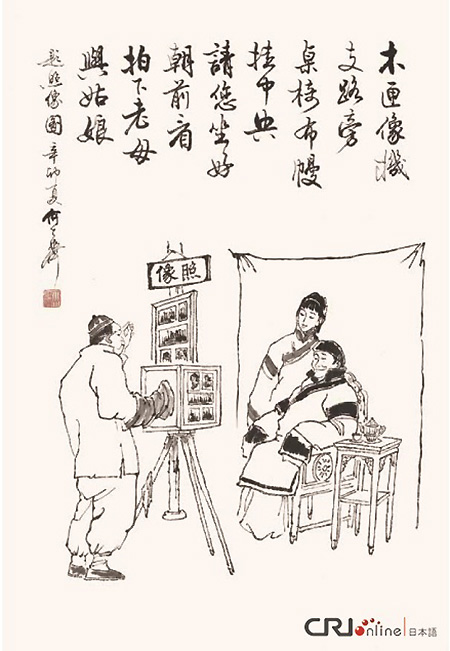 木匣像機
支路旁
桌椅布幔
挂中央
請您坐好
朝前看
拍下老母
與姑娘
題照像圖 辛卯夏 何大齊
照像
CRIonline 日本語